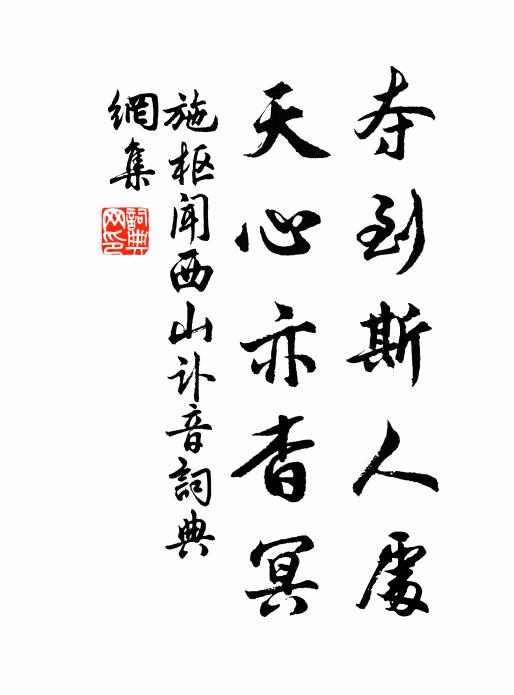 夺到斯人处
天心亦杳冥
施枢闻西山讣音詞典
網集
詞典
网印